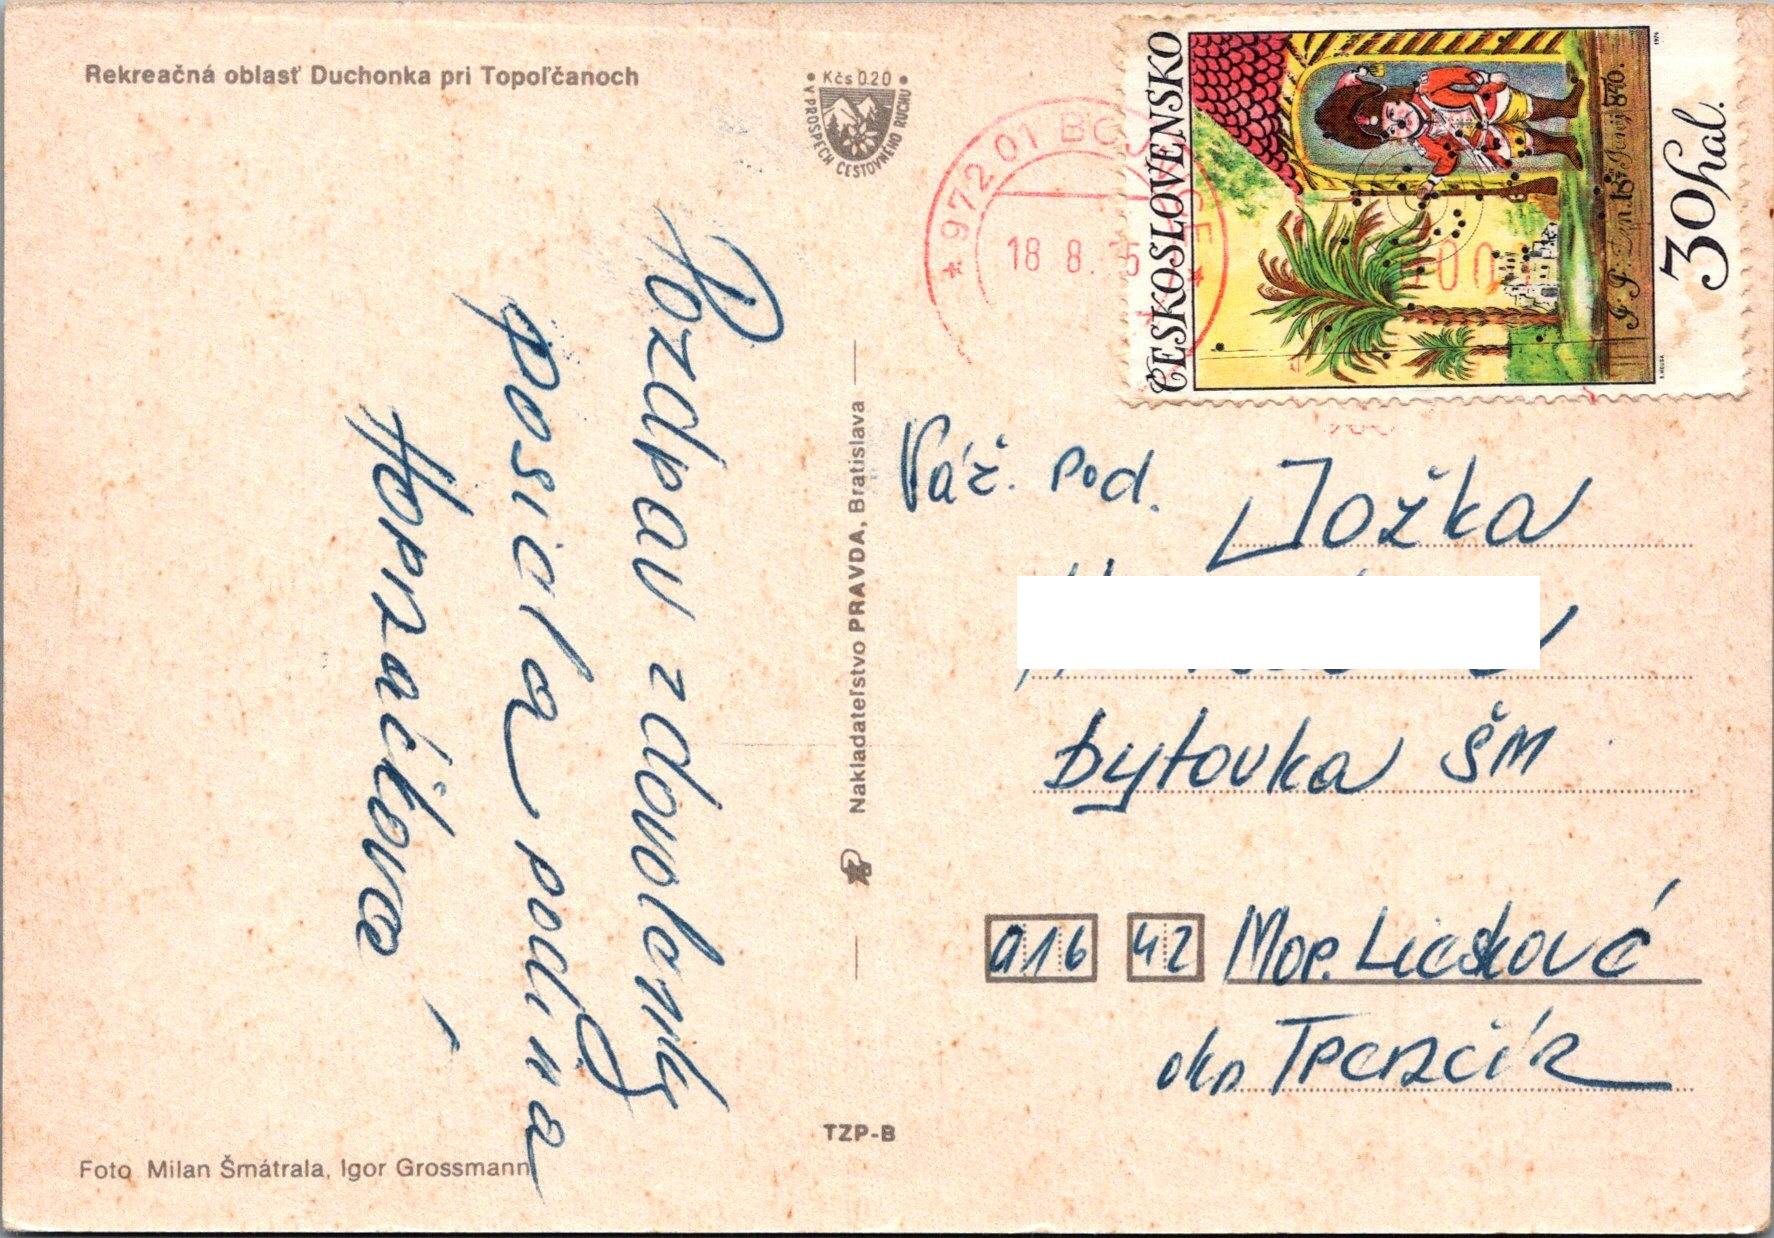 Rekreačná oblasť Duchonka pri Topoľčanoch
Kčs 0.20
V PROSPECH CESTOVNÉHO RUCHU
972 01 BOJ
18 8. 5
ČESKOSLOVENSKO
30 hal.
1974
Pozdrav z dovolenky
posiela rodina
Hornačkova
Nakladateľstvo PRAVDA, Bratislava
Váž. pod.
Jožka
bytovka ŠM
916 42 Mor. Lieskové
okr. Trenčín
TZP-B
Foto Milan Šmátrala, Igor Grossmann